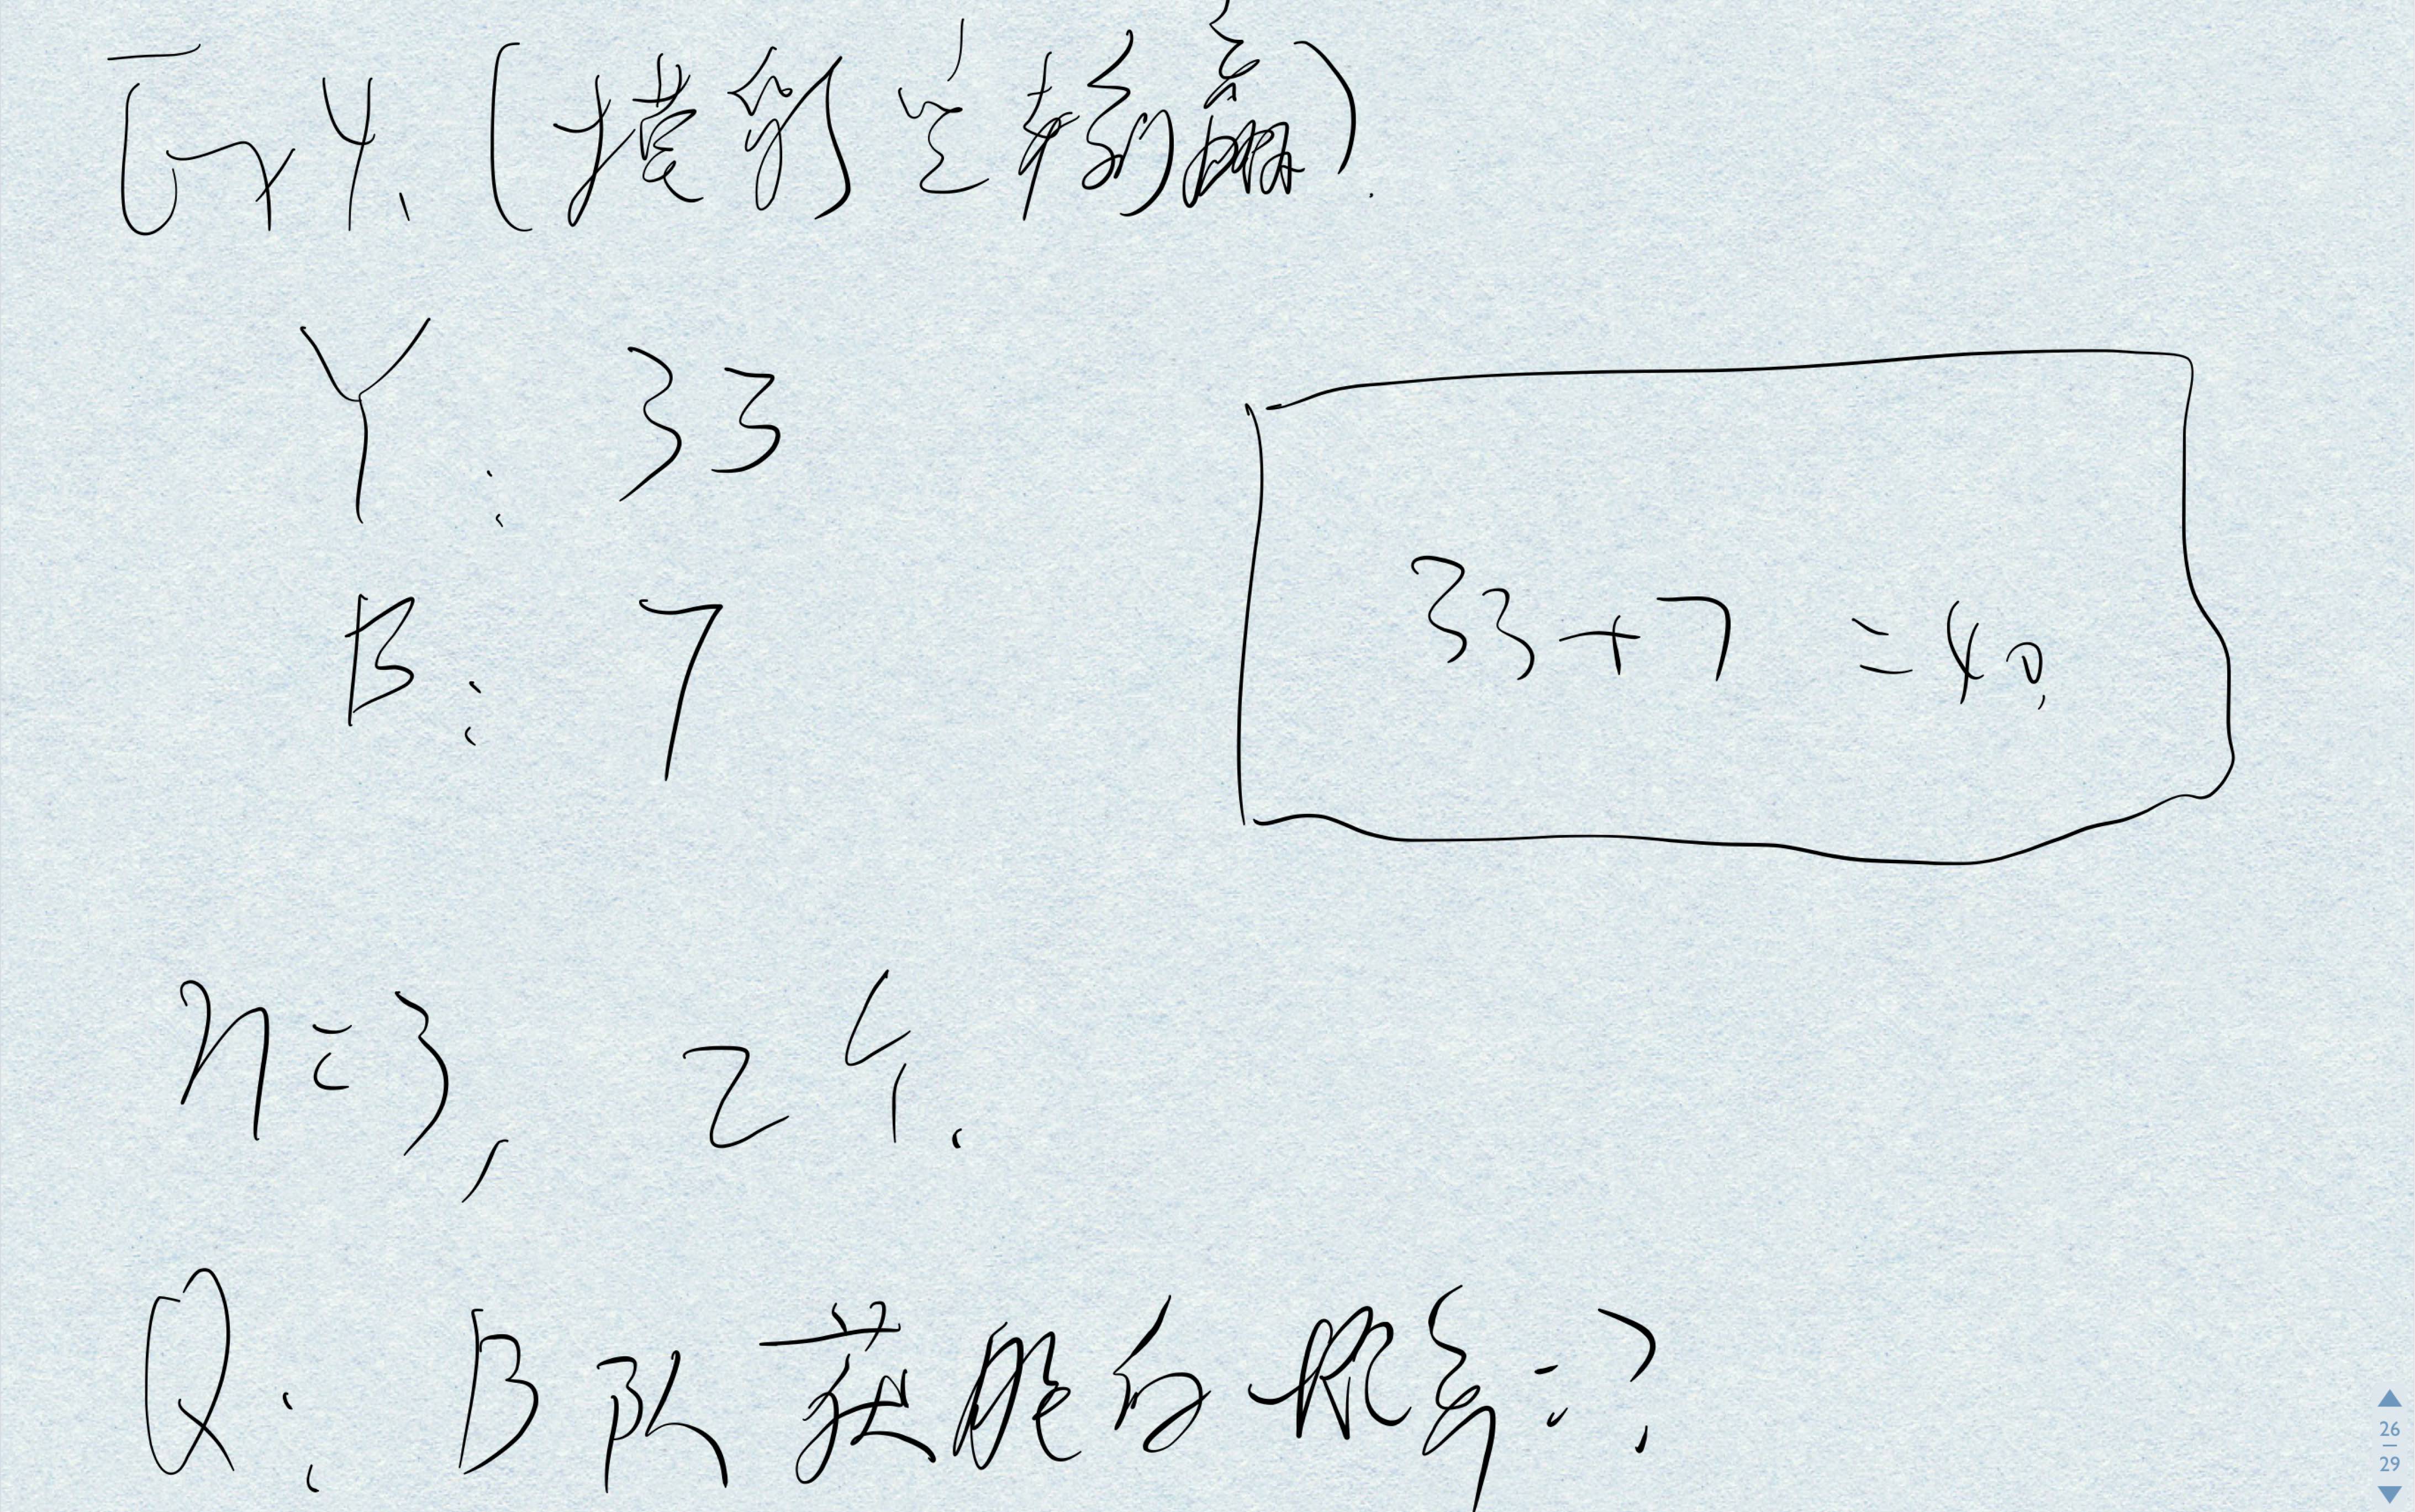 Ex4. (摸彩定输赢).
Y: 33
B: 7
33+7 = 40.
n=3, 2个.
Q: B队获胜的概率=?
26
29